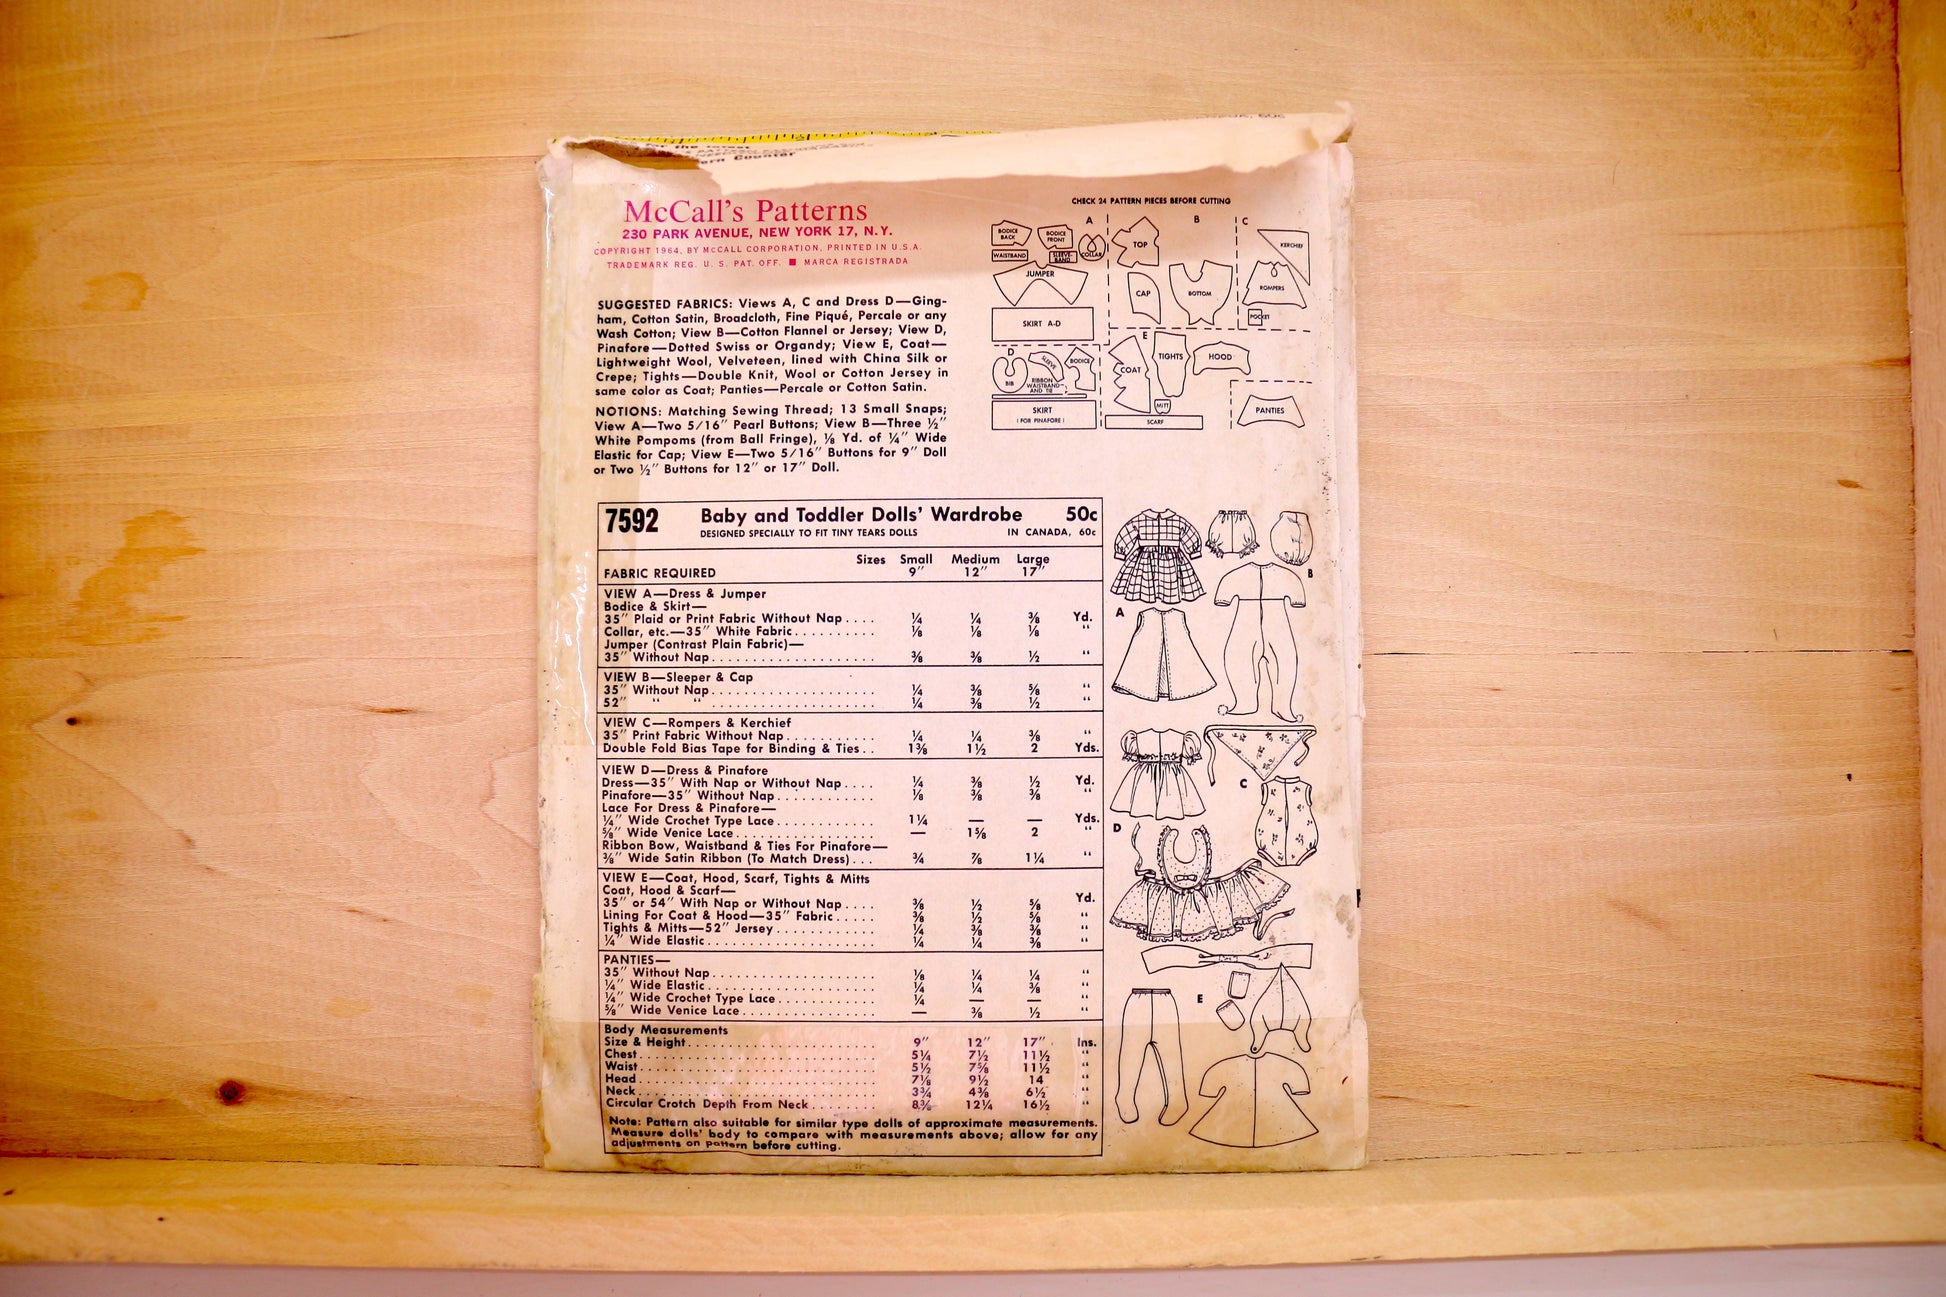 for the latest
Pattern Counter
McCall's Patterns
230 PARK AVENUE, NEW YORK 17, N.Y.
COPYRIGHT 1964, BY McCALL CORPORATION, PRINTED IN U.S.A.
TRADEMARK REG. U. S. PAT. OFF. ■ MARCA REGISTRADA
SUGGESTED FABRICS: Views A, C and Dress D—Ging-
ham, Cotton Satin, Broadcloth, Fine Piqué, Percale or any
Wash Cotton; View B—Cotton Flannel or Jersey; View D,
Pinafore—Dotted Swiss or Organdy; View E, Coat—
Lightweight Wool, Velveteen, lined with China Silk or
Crepe; Tights—Double Knit, Wool or Cotton Jersey in
same color as Coat; Panties—Percale or Cotton Satin.
NOTIONS: Matching Sewing Thread; 13 Small Snaps;
View A—Two 5/16" Pearl Buttons; View B—Three ½"
White Pompoms (from Ball Fringe), ⅛ Yd. of ¼" Wide
Elastic for Cap; View E—Two 5/16" Buttons for 9" Doll
or Two ½" Buttons for 12" or 17" Doll.
CHECK 24 PATTERN PIECES BEFORE CUTTING
A B C
BODICE BACK
BODICE FRONT
WAISTBAND
SLEEVE-BAND
COLLAR
JUMPER
SKIRT A-D
TOP
CAP
BOTTOM
KERCHIEF
ROMPERS
POCKET
D
BIB
SLEEVE
BODICE
RIBBON
WAISTBAND
AND TIE
SKIRT
(FOR PINAFORE)
E
COAT
TIGHTS
HOOD
MITT
SCARF
PANTIES
7592 Baby and Toddler Dolls' Wardrobe 50c
DESIGNED SPECIALLY TO FIT TINY TEARS DOLLS IN CANADA, 60c
Sizes Small Medium Large
FABRIC REQUIRED 9" 12" 17"
VIEW A—Dress & Jumper
Bodice & Skirt—
35" Plaid or Print Fabric Without Nap.... ¼ ¼ ⅜ Yd.
Collar, etc.—35" White Fabric.......... ⅛ ⅛ ⅛ "
Jumper (Contrast Plain Fabric)—
35" Without Nap.................... ⅜ ⅜ ½ "
VIEW B—Sleeper & Cap
35" Without Nap.................... ¼ ⅜ ⅝ "
52" " " .................... ¼ ⅜ ½ "
VIEW C—Rompers & Kerchief
35" Print Fabric Without Nap........... ¼ ¼ ⅜ "
Double Fold Bias Tape for Binding & Ties.. 1⅜ 1½ 2 Yds.
VIEW D—Dress & Pinafore
Dress—35" With Nap or Without Nap.... ¼ ⅜ ½ Yd.
Pinafore—35" Without Nap............ ⅛ ⅜ ⅜ "
Lace For Dress & Pinafore—
¼" Wide Crochet Type Lace............ 1¼ — — Yds.
⅝" Wide Venice Lace................. — 1⅝ 2 "
Ribbon Bow, Waistband & Ties For Pinafore—
⅜" Wide Satin Ribbon (To Match Dress)... ¾ ⅞ 1¼ "
VIEW E—Coat, Hood, Scarf, Tights & Mitts
Coat, Hood & Scarf—
35" or 54" With Nap or Without Nap.... ⅜ ½ ⅝ Yd.
Lining For Coat & Hood—35" Fabric..... ⅜ ½ ⅝ "
Tights & Mitts—52" Jersey............ ¼ ⅜ ⅜ "
¼" Wide Elastic..................... ¼ ¼ ⅜ "
PANTIES—
35" Without Nap.................... ⅛ ¼ ¼ "
¼" Wide Elastic..................... ¼ ¼ ⅜ "
¼" Wide Crochet Type Lace............ ¼ — — "
⅝" Wide Venice Lace................ — ⅜ ½ "
Body Measurements
Size & Height....................... 9" 12" 17" Ins.
Chest............................. 5¼ 7½ 11½ "
Waist............................. 5½ 7⅝ 11½ "
Head............................. 7⅛ 9½ 14 "
Neck............................. 3¾ 4⅜ 6½ "
Circular Crotch Depth From Neck........ 8⅜ 12¼ 16½ "
Note: Pattern also suitable for similar type dolls of approximate measurements.
Measure dolls' body to compare with measurements above; allow for any
adjustments on pattern before cutting.
A
B
C
D
E